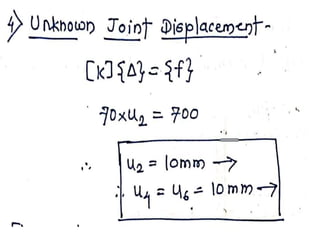 4) Unknown Joint Displacement -
[K]{Δ} = {f}
70×u₂ = 700
∴ u₂ = 10mm →
∴ u₄ = u₆ = 10mm →